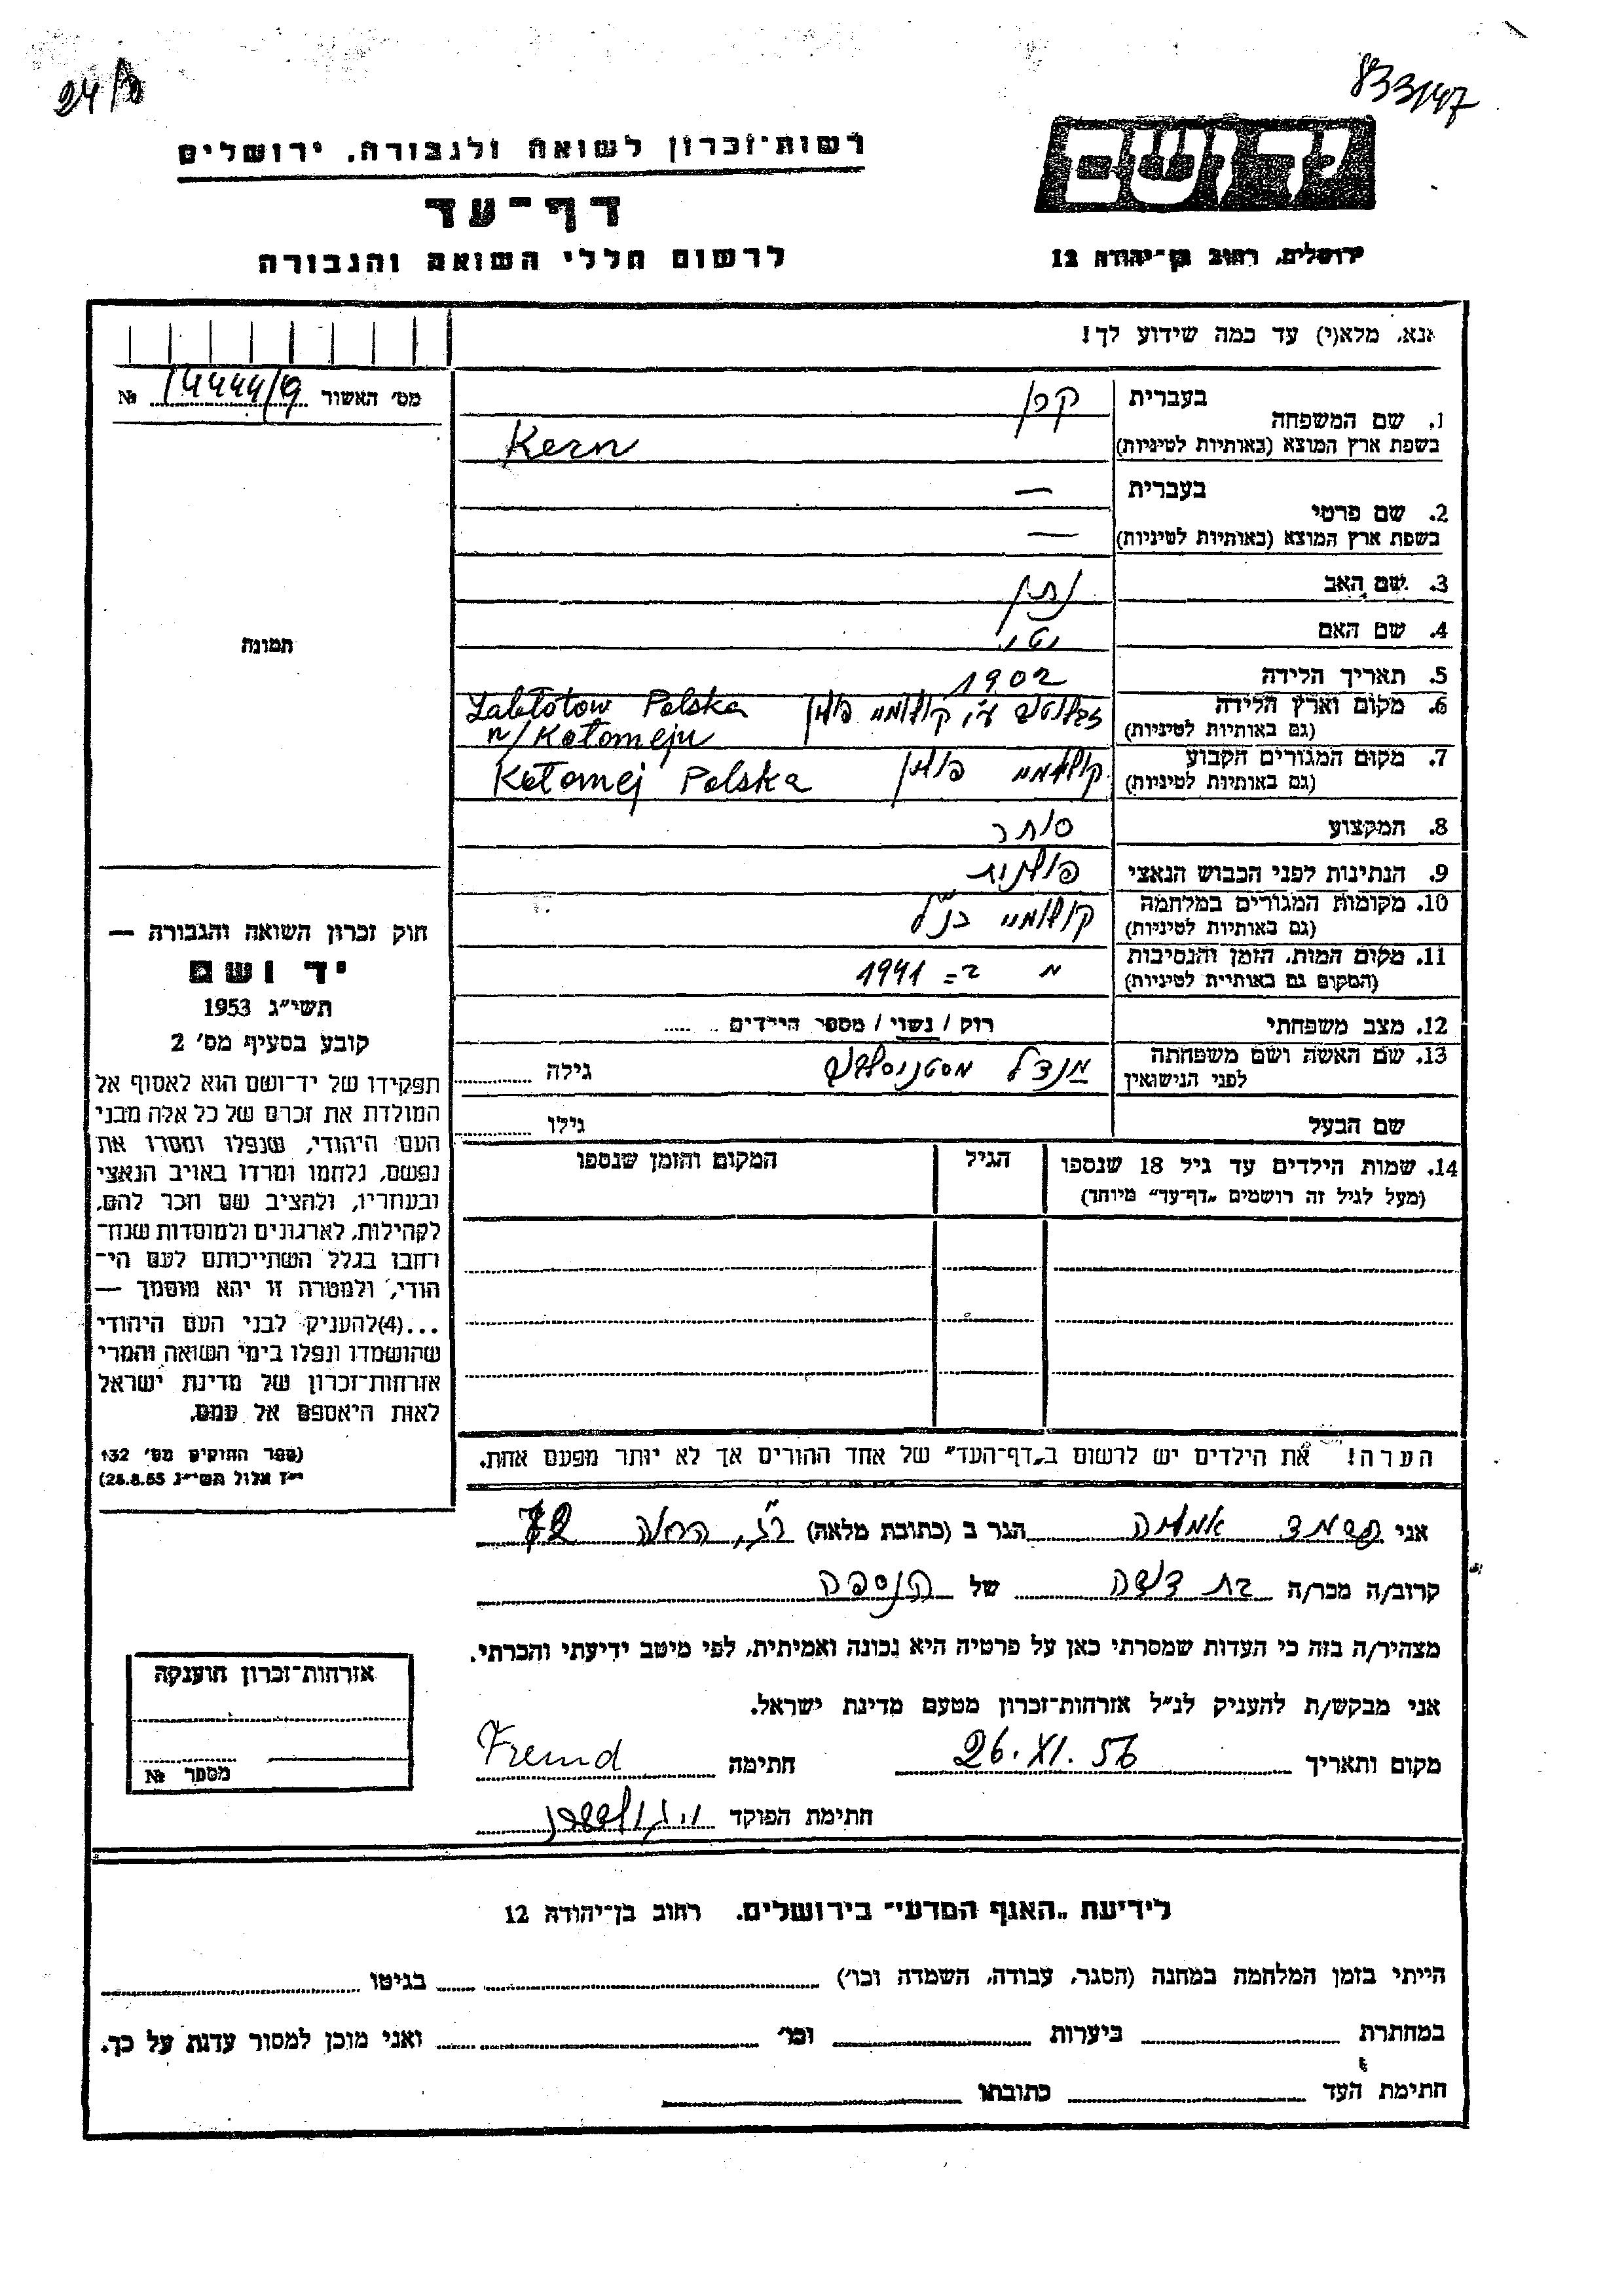 24/8
833/47
רשות־זכרון לשואה ולגבורה, ירושלים
דף־עד
לרשום חללי השואה והגבורה
יד ושם
ירושלים, רחוב בן־יהודה 12
אנא, מלא(י) עד כמה שידוע לך!
מס׳ האשור 14444/9 №
1. שם המשפחה
בעברית קרן
בשפת ארץ המוצא (באותיות לטיניות) Kern
2. שם פרטי
בעברית —
בשפת ארץ המוצא (באותיות לטיניות) —
3. שם האב נתן
4. שם האם
תמונה
5. תאריך הלידה 1902
6. מקום וארץ הלידה
(גם באותיות לטיניות)
ע״י קולומיי פולין Zabłotow Polska
n/Kołomeju
7. מקום המגורים הקבוע
(גם באותיות לטיניות)
קולומיי פולין Kołomej Polska
8. המקצוע סוחר
9. הנתינות לפני הכבוש הנאצי פולנית
10. מקומות המגורים במלחמה
(גם באותיות לטיניות)
קולומיי כנ״ל
11. מקום המות, הזמן והנסיבות
(המקום גם באותיית לטיניות)
ב= 1941
12. מצב משפחתי רוק / נשוי / מספר הילדים
13. שם האשה ושם משפחתה
לפני הנישואין
גילה
שם הבעל גילו
14. שמות הילדים עד גיל 18 שנספו
(מעל לגיל זה רושמים „דף־עד״ מיוחד)
הגיל
המקום והזמן שנספו
הערה! את הילדים יש לרשום ב„דף־העד״ של אחד ההורים אך לא יותר מפעם אחת.
חוק זכרון השואה והגבורה —
יד ושם
תשי״ג 1953
קובע בסעיף מס׳ 2
תפקידו של יד־ושם הוא לאסוף אל
המולדת את זכרם של כל אלה מבני
העם היהודי, שנפלו ומסרו את
נפשם, נלחמו ומרדו באויב הנאצי
ובעוזריו, ולהציב שם וזכר להם,
לקהילות, לארגונים ולמוסדות שנח־
רבו בגלל השתייכותם לעם הי־
הודי, ולמטרה זו יהא מוסמך —
...(4)להעניק לבני העם היהודי
שהושמדו ונפלו בימי השואה והמרי
אזרחות־זכרון של מדינת ישראל
לאות היאספם אל עמם.
(ספר החוקים מס׳ 132
י״ז אלול תשי״ג 28.8.53)
אני הגר ב (כתובת מלאה) ר״ג,
קרוב/ה מכר/ה בת דודה של הנספה
מצהיר/ה בזה כי העדות שמסרתי כאן על פרטיה היא נכונה ואמיתית, לפי מיטב ידיעתי והכרתי.
אני מבקש/ת להעניק לנ״ל אזרחות־זכרון מטעם מדינת ישראל.
מקום ותאריך 26.XI.56 חתימה Fremd
חתימת הפוקד
אזרחות־זכרון הוענקה
מספר №
לידיעת „האגף המדעי״ בירושלים, רחוב בן־יהודה 12
הייתי בזמן המלחמה במחנה (הסגר, עבודה, השמדה וכו׳) בגיטו
במחתרת ביערות וכו׳ ואני מוכן למסור עדות על כך.
חתימת העד כתובתו